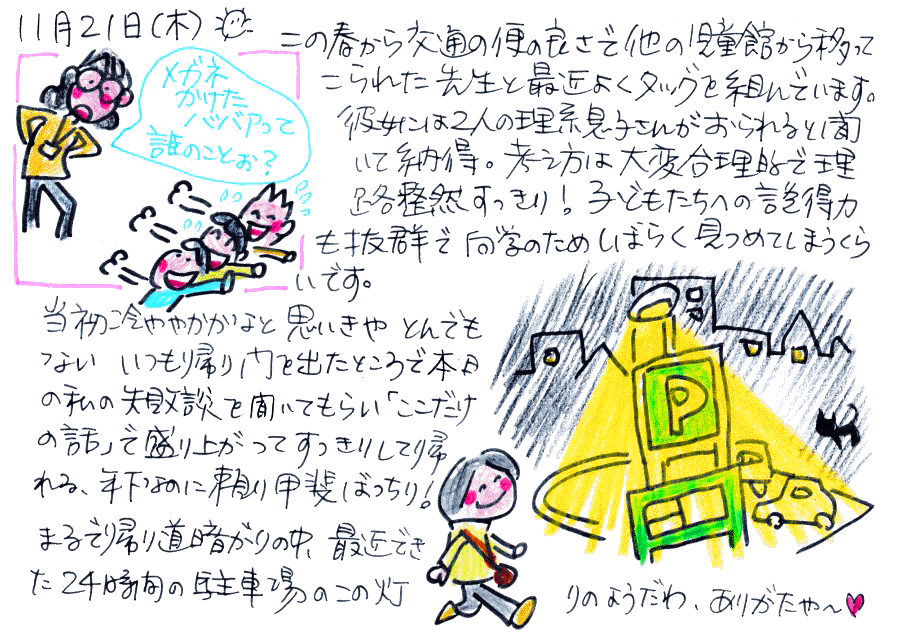 11月21日(木)
この春から交通の便の良さで他の児童館から移って
こられた先生と最近よくタッグを組んでいます。
彼女には2人の理系息子さんがおられると聞
いて納得。考え方は大変合理的で理
路整然すっきり!子どもたちへの説得力
も抜群で向学のためしばらく見つめてしまうくら
いです。
メガネ
かけた
ババアって
誰のことぉ?
当初冷ややかかなと思いきやとんでも
ない いつも帰り門を出たところで本日
の私の失敗談を聞いてもらい「ここだけ
の話」で盛り上がってすっきりして帰
れる、年下なのに頼り甲斐ばっちり!
まるで帰り道暗がりの中、最近でき
た24時間の駐車場のこの灯
りのようだわ、ありがたや〜
P